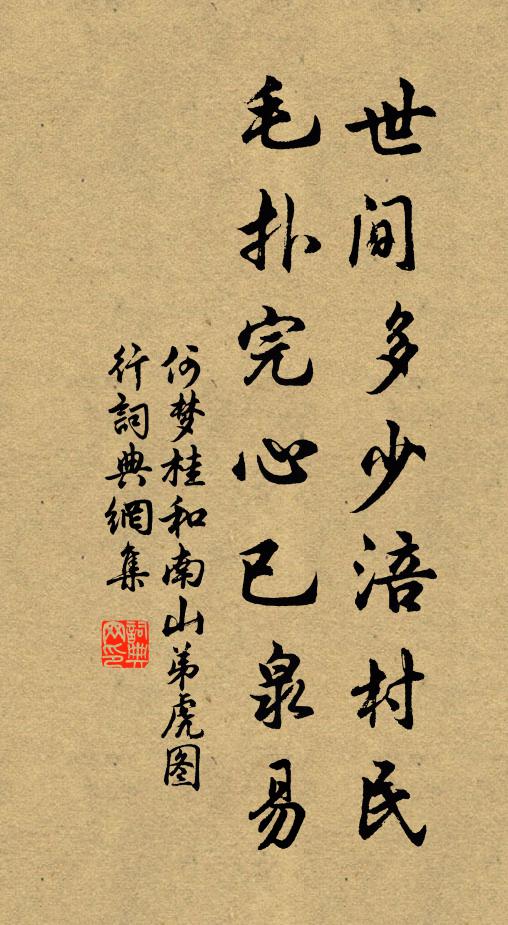 世间多少涪村民
毛扑完心已泉易
何梦桂和南山弟虎图
行词典網集
詞典網印